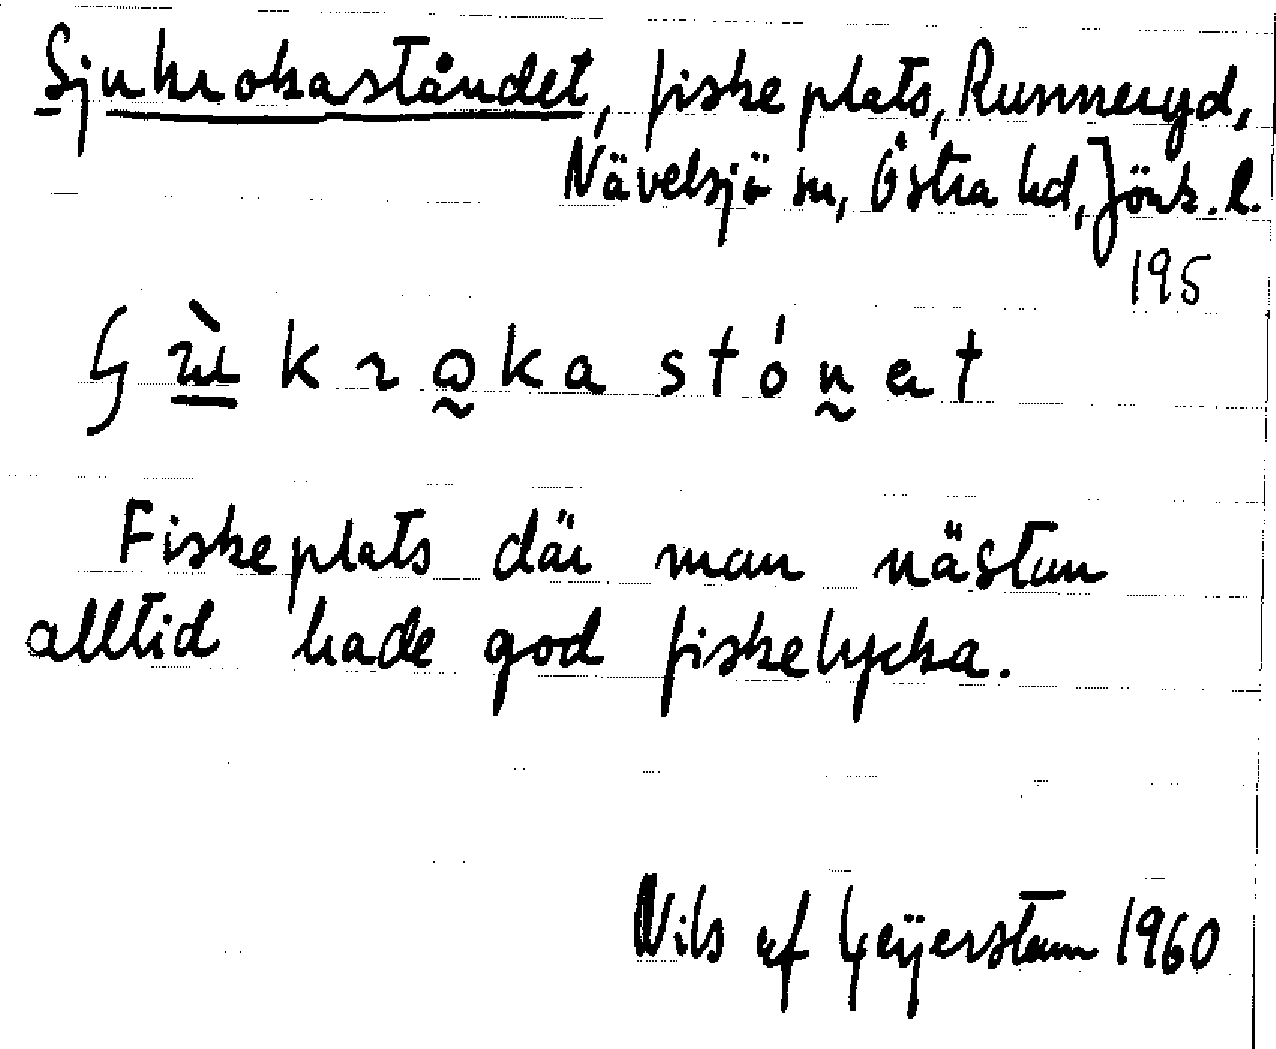 Sjukrokaståndet, fiskeplats, Runneryd,
Nävelsjö sn, Östra hd, Jönk. l.
195
Fiskeplats där man nästan
alltid hade god fiskelycka.
Nils af Geijerstam 1960